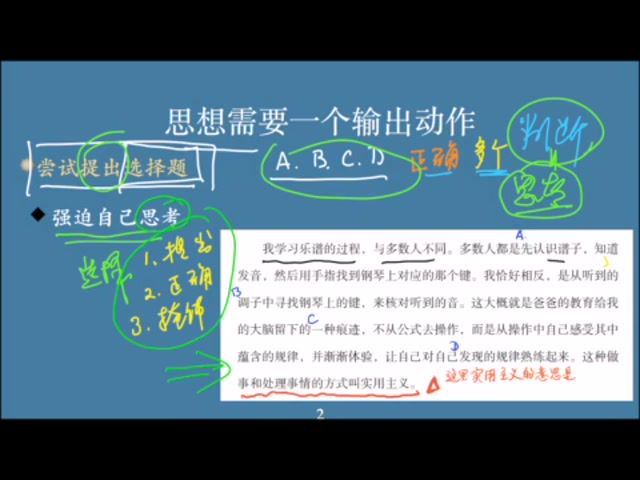 思想需要一个输出动作
判断
尝试提出选择题
A. B. C. D 正确 多个
思考
强迫自己思考
1. 提出
2. 正确
3.
我学习乐谱的过程,与多数人不同。多数人都是先认识谱子,知道
发音,然后用手指找到钢琴上对应的那个键。我恰好相反,是从听到的
调子中寻找钢琴上的键,来核对听到的音。这大概就是爸爸的教育给我
的大脑留下的一种痕迹,不从公式去操作,而是从操作中自己感受其中
蕴含的规律,并渐渐体验,让自己对自己发现的规律熟练起来。这种做
事和处理事情的方式叫实用主义。
这里实用主义的意思是
A
B
C
D
2